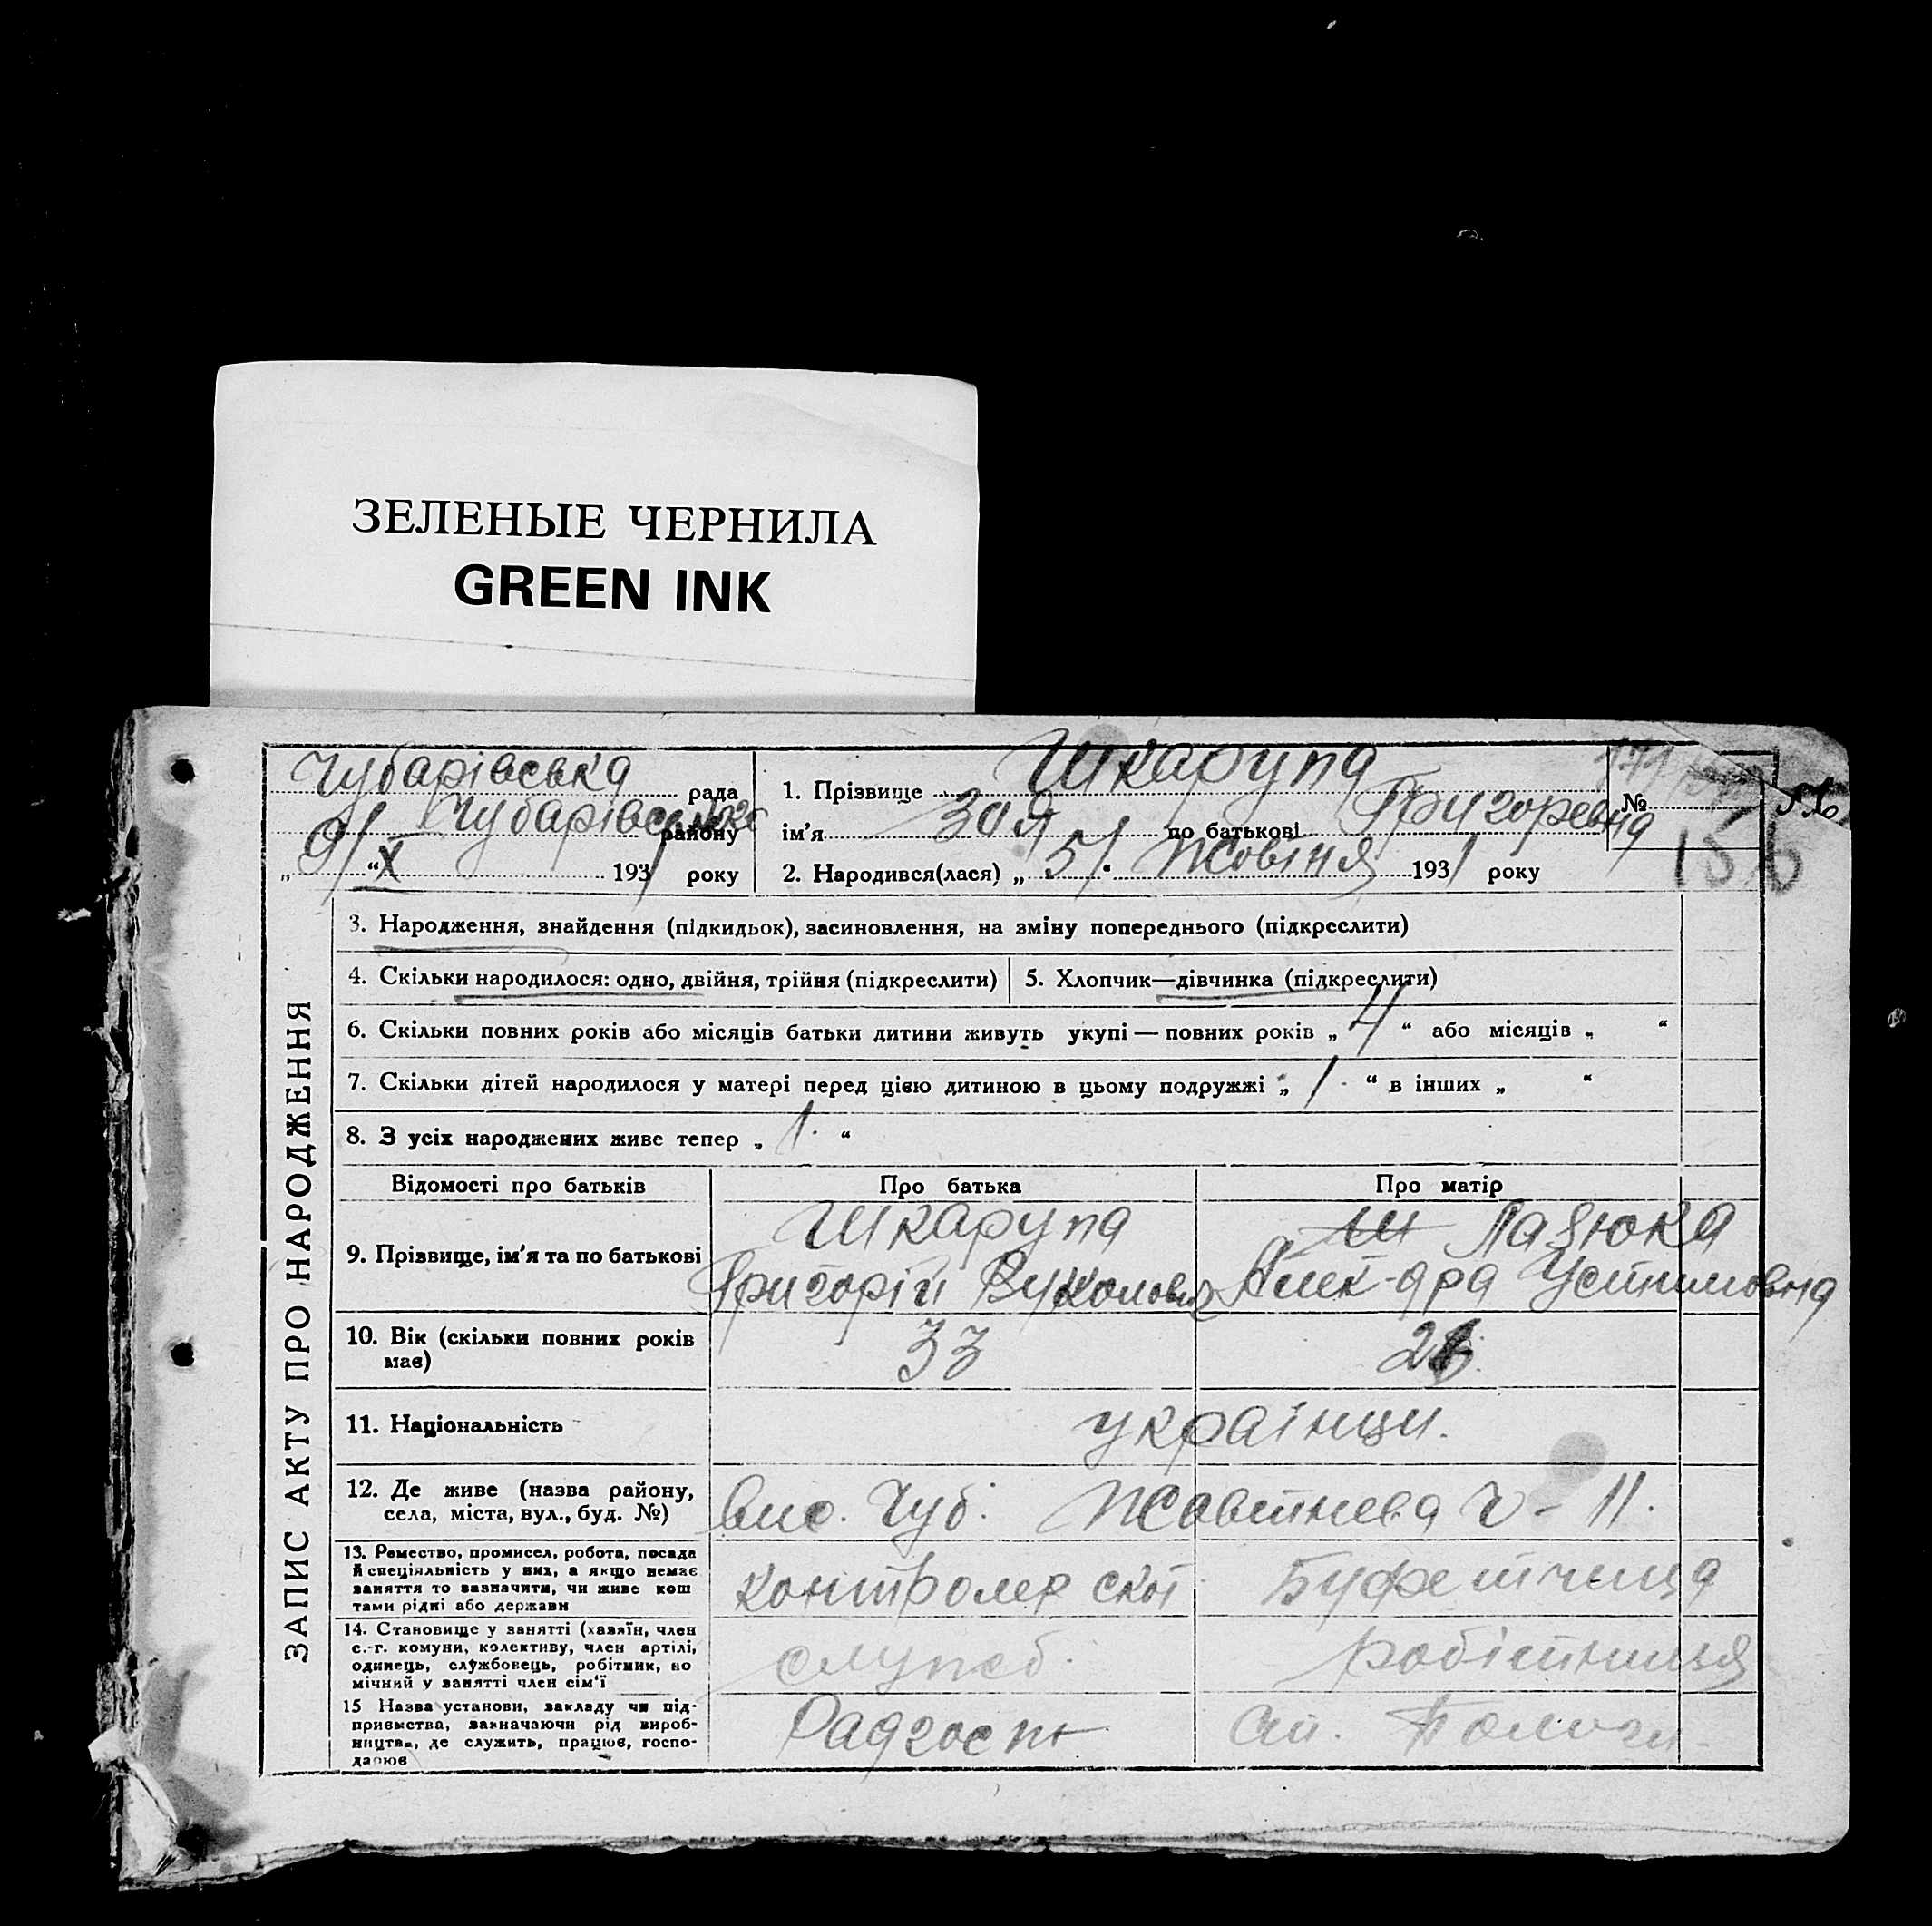 ЗЕЛЕНЫЕ ЧЕРНИЛА
GREEN INK
ЗАПИС АКТУ ПРО НАРОДЖЕННЯ
Чубарівська рада
Чубарівсько району
„ 9/ “ X 1931 року
1. Прізвище Шкарупа
ім'я Зоя по батькові Григоревна
№
156
2. Народився(лася) „ 5/ Жовтня 1931 року
3. Народження, знайдення (підкидьок), засиновлення, на зміну попереднього (підкреслити)
4. Скільки народилося: одно, двійня, трійня (підкреслити)
5. Хлопчик—дівчинка (підкреслити)
6. Скільки повних років або місяців батьки дитини живуть укупі — повних років „ 4 “ або місяців „ “
7. Скільки дітей народилося у матері перед цією дитиною в цьому подружжі „ 1. “ в інших „ “
8. З усіх народжених живе тепер „ 1. “
Відомості про батьків
Про батька
Про матір
9. Прізвище, ім'я та по батькові
Шкарупа
Григорій Вуколович
Лазюка
Алек-дра Устимовна
10. Вік (скільки повних років
має)
33
11. Національність
українци.
12. Де живе (назва району,
села, міста, вул., буд. №)
Чуб. Жовтнева 11.
13. Ремество, промисел, робота, посада
й спеціяльність у них, а якщо немає
заняття то зазначити, чи живе кош
тами рідні або держави
контролер скот
Буфетчица
14. Становище у занятті (хазяїн, член
с.-г. комуни, колективу, член артілі,
одинець, службовець, робітник, по
мічний у занятті член сім'ї
служб.
робітниця
15 Назва установи, закладу чи під-
приємства, зазначаючи рід вироб-
ництва, де служить, працює, госпо-
дарює
Радгосп
ст. Пологи